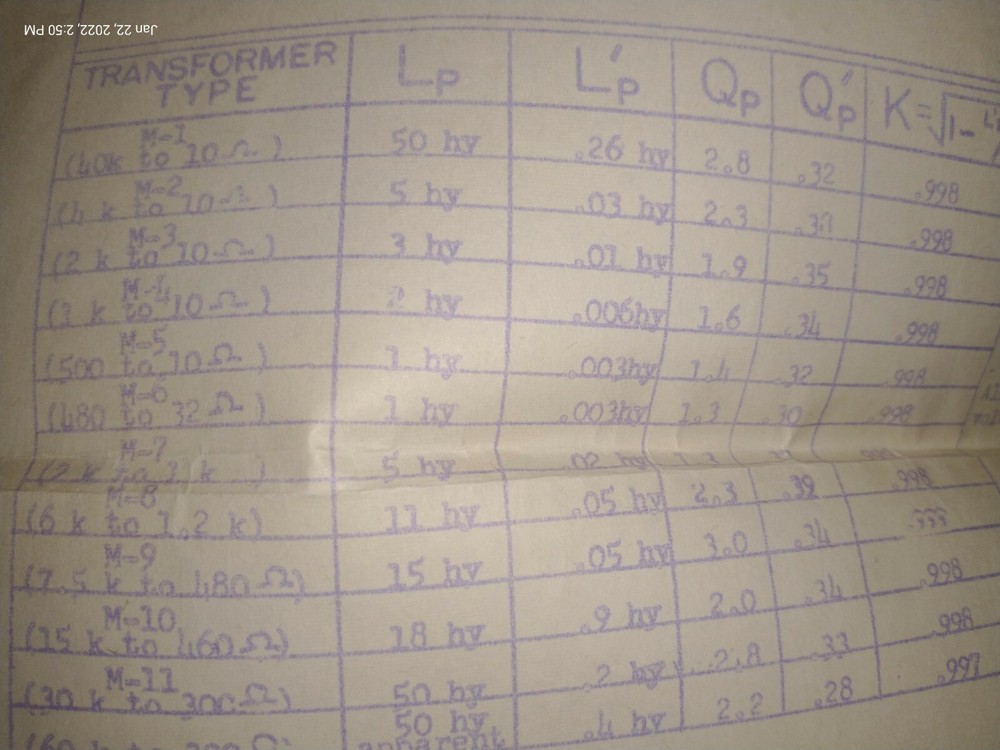 Jan 22, 2022, 2:50 PM
TRANSFORMER TYPE Lp L'p Qp Q'p K=√1-L'p
M-1
(40k to 10 Ω) 50 hy .26 hy 2.8 .32 .998
M-2
(4 k to 10 Ω) 5 hy .03 hy 2.3 .998
M-3
(2 k to 10 Ω) 3 hy .01 hy 1.9 .35 .998
M-4
(1 k to 10 Ω) hy .006hy 1.6 .34 .998
M-5
(500 to 10 Ω) 1 hy .003hy 1.4 .32 .998
M-6
(480 to 32 Ω) 1 hy .003hy 1.3 .30 .998
M-7
(2 k to k) 5 hy .02 hy
M-8
(6 k to 1.2 k) 11 hy .05 hy 2.3 .39 .998
M-9
(7.5 k to 480 Ω) 15 hy .05 hy 3.0 .34
M-10
(15 k to 460 Ω) 18 hy .9 hy 2.0 .34 .998
M-11
(30 k to 300 Ω) 50 hy .2 hy 2.8 .33 .998
50 hy .4 hy 2.2 .28 .997
apparent